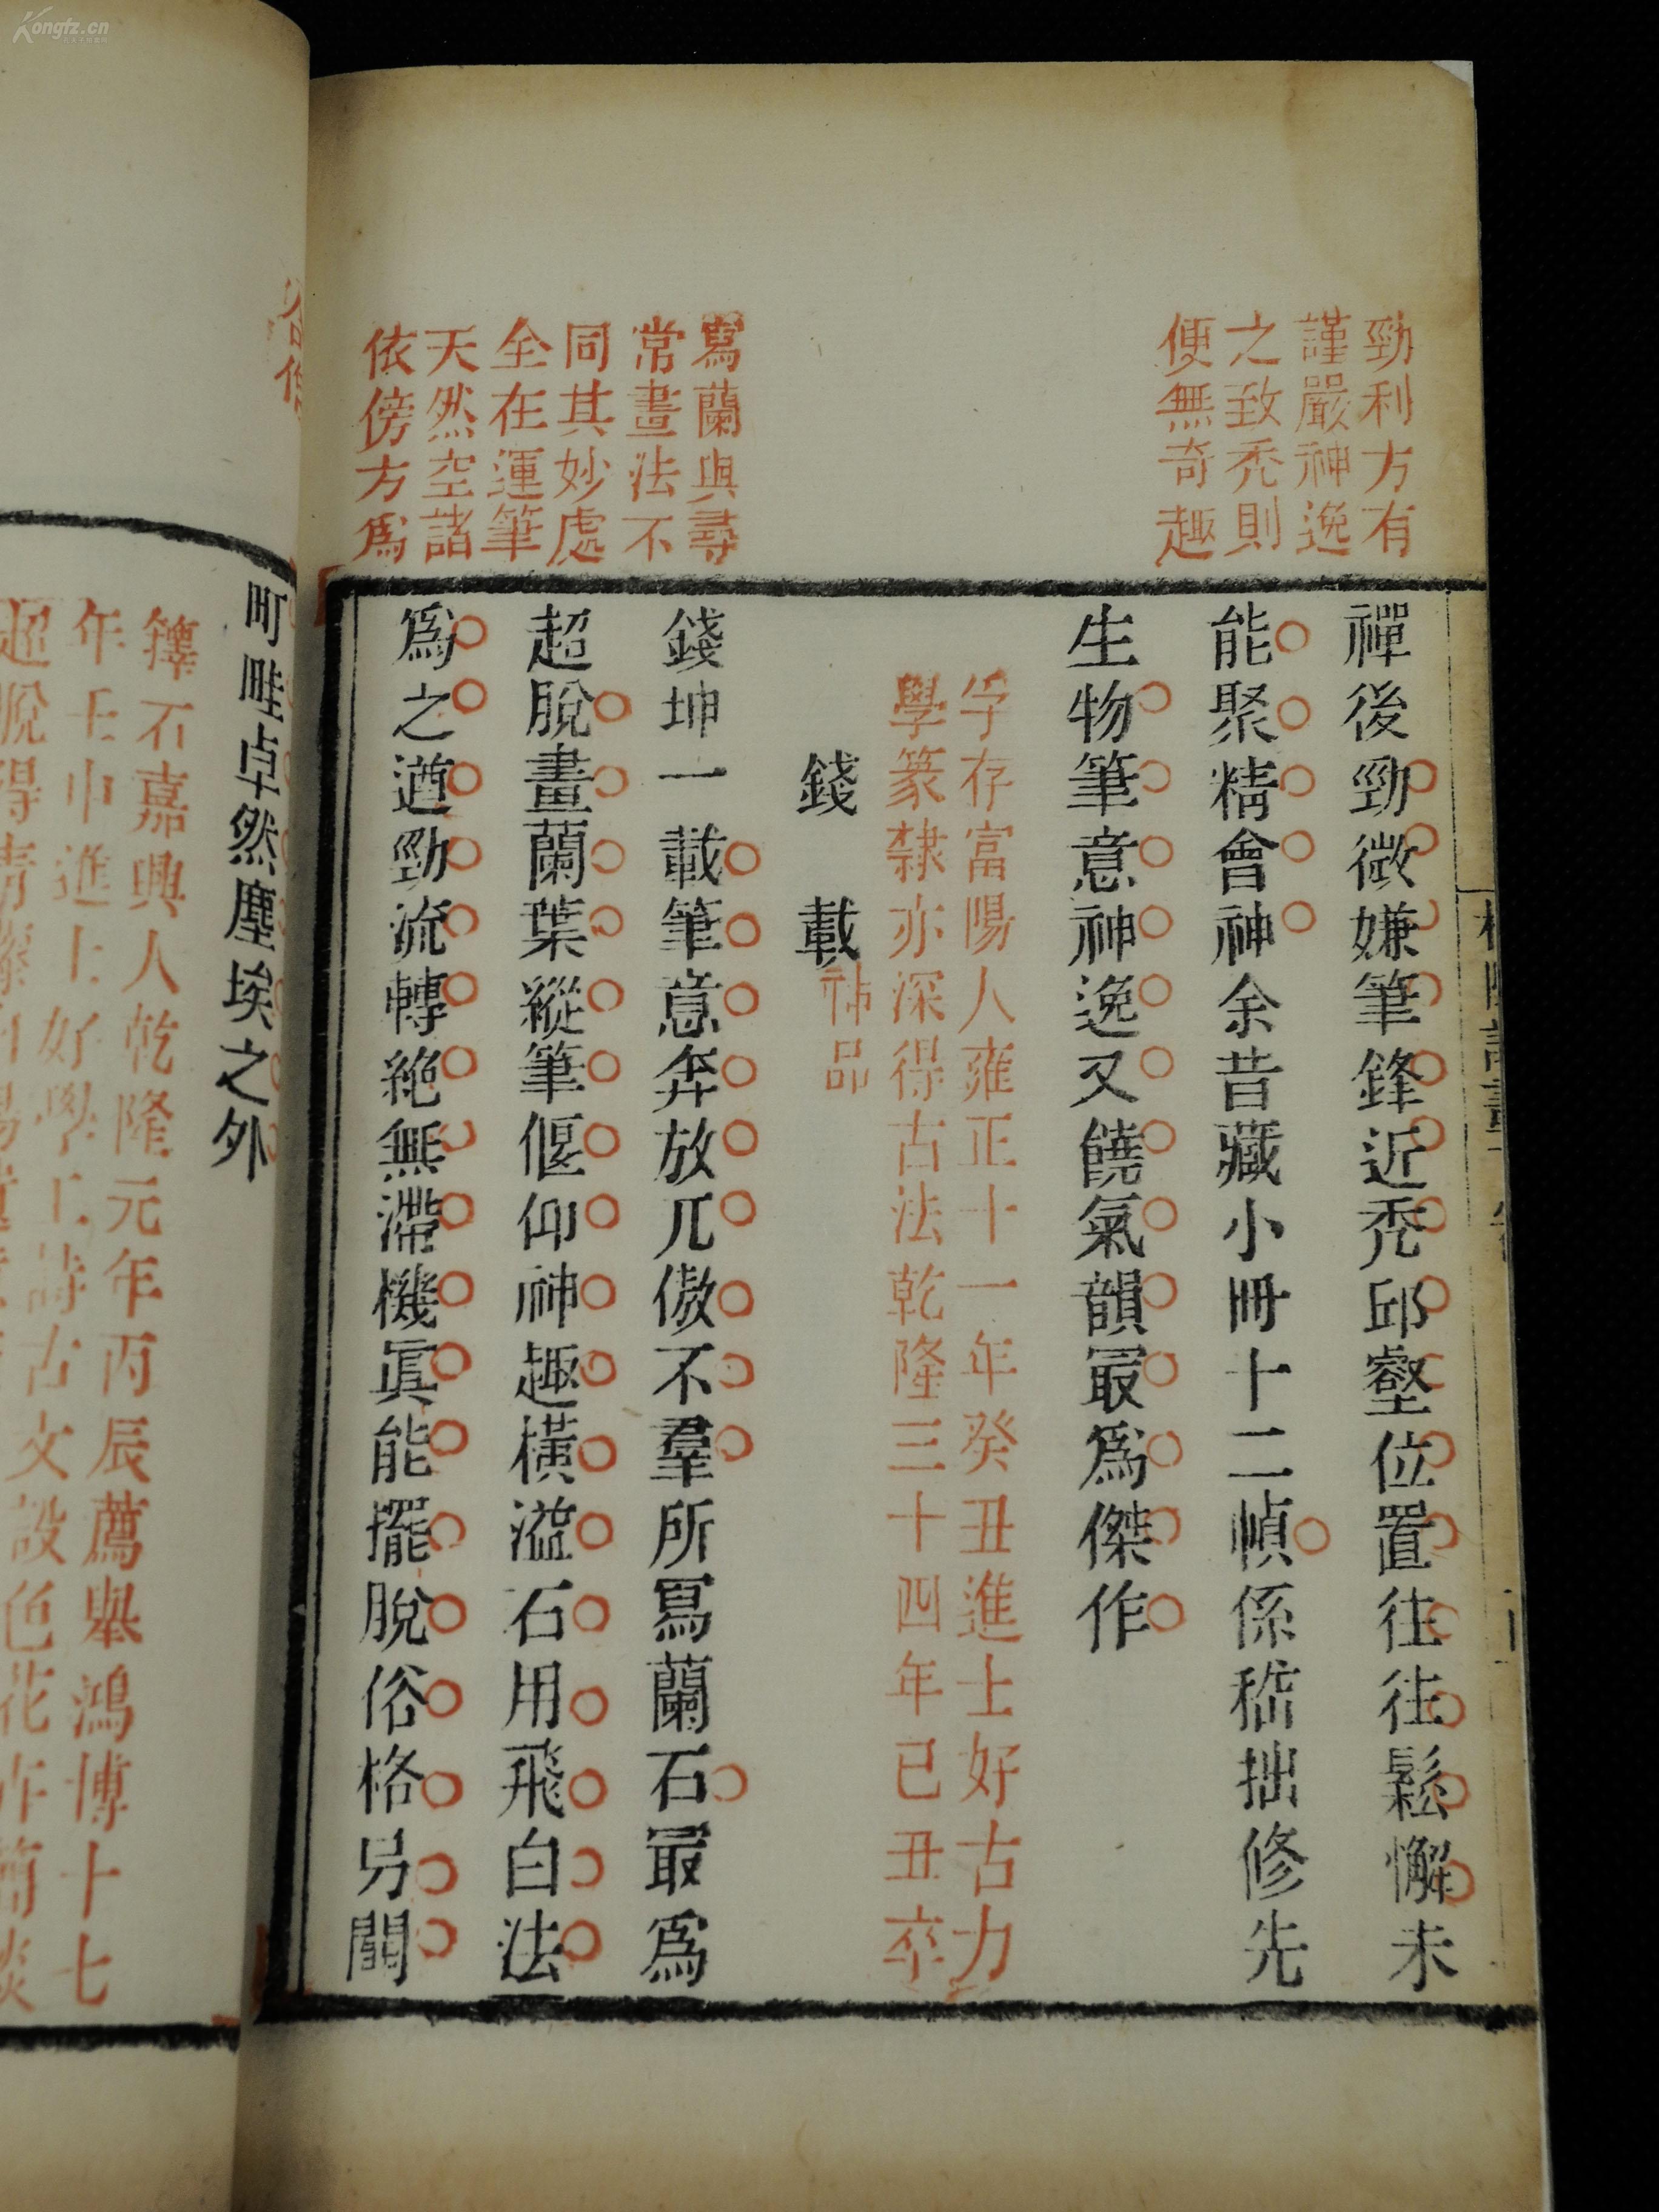 Kongfz.cn
勁利方有
謹嚴神逸
之致禿則
便無奇趣
寫蘭與尋
常畫法不
同其妙處
全在運筆
天然空諸
依傍方爲
禪後勁微嫌筆鋒近禿邱壑位置往往鬆懈未
能聚精會神余昔藏小冊十二幀係嵇拙修先
生物筆意神逸又饒氣韻最爲傑作
字存富陽人雍正十一年癸丑進士好古力
學篆隸亦深得古法乾隆三十四年已丑卒
錢載神品
錢坤一載筆意奔放兀傲不羣所寫蘭石最爲
超脫畫蘭葉縱筆偃仰神趣橫溢石用飛白法
爲之遒勁流轉絕無滯機眞能擺脫俗格另闢
町畦卓然塵埃之外
籜石嘉興人乾隆元年丙辰薦舉鴻博十七
年壬申進士好學工詩古文設色花卉簡淡
超脫得